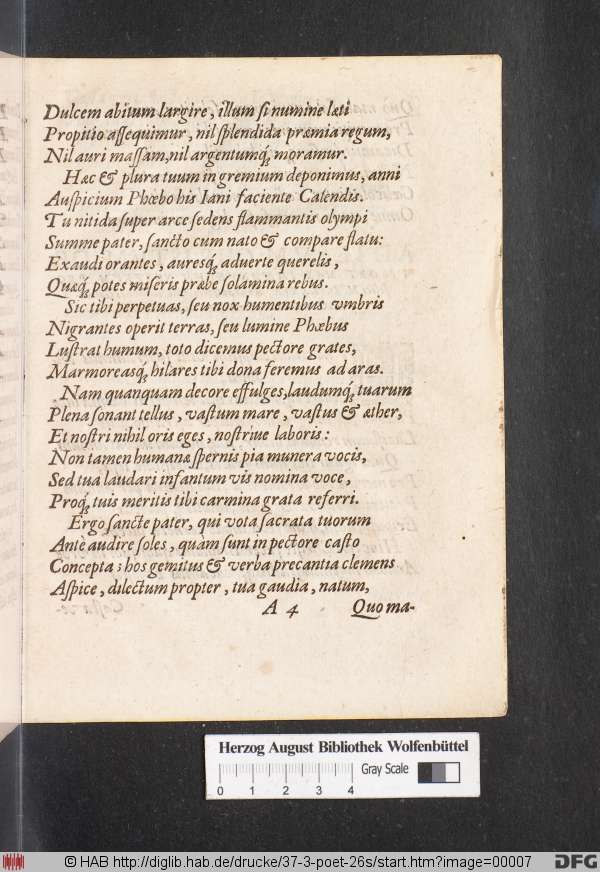 Dulcem abitum largire, illum si numine læti
Propitio assequimur, nil splendida præmia regum,
Nil auri massam, nil argentumq́; moramur.
Hæc & plura tuum in gremium deponimus, anni
Auspicium Phœbo his Iani faciente Calendis.
Tu nitida super arce sedens flammantis olympi
Summe pater, sancto cum nato & compare flatu:
Exaudi orantes, auresq́; aduerte querelis,
Quæq́; potes miseris præbe solamina rebus.
Sic tibi perpetuas, seu nox humentibus vmbris
Nigrantes operit terras, seu lumine Phœbus
Lustrat humum, toto dicemus pectore grates,
Marmoreasq́; hilares tibi dona feremus ad aras.
Nam quanquam decore effulges, laudumq́; tuarum
Plena sonant tellus, vastum mare, vastus & æther,
Et nostri nihil oris eges, nostriue laboris:
Non tamen humanæ spernis pia munera vocis,
Sed tua laudari infantum vis nomina voce,
Proq́; tuis meritis tibi carmina grata referri.
Ergo sancte pater, qui vota sacrata tuorum
Antè audire soles, quàm sunt in pectore casto
Concepta: hos gemitus & verba precantia clemens
Aspice, dilectum propter, tua gaudia, natum,
A 4 Quo ma-
Herzog August Bibliothek Wolfenbüttel
Gray Scale
0 1 2 3 4
© HAB http://diglib.hab.de/drucke/37-3-poet-26s/start.htm?image=00007
DFG